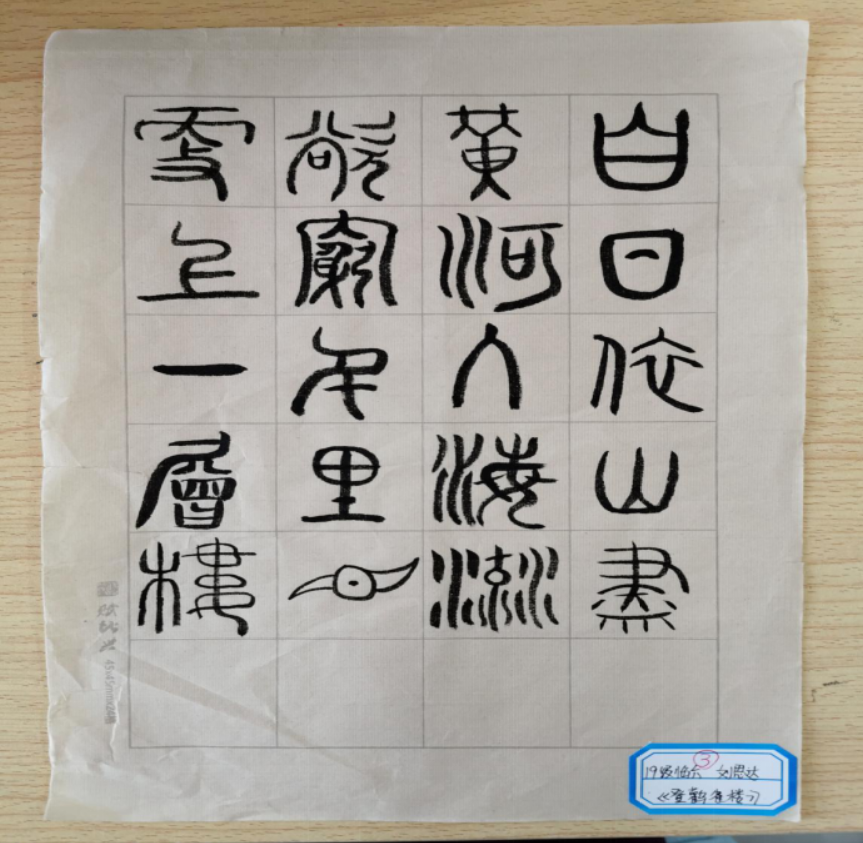 白日依山盡
黃河入海流
欲窮千里目
更上一層樓
③
19级临六
《登鹳雀楼》